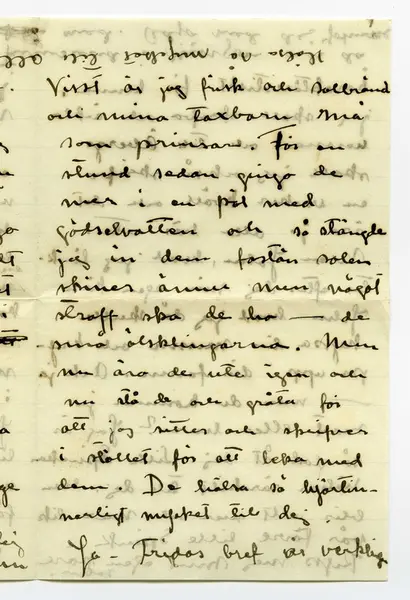 Hälsa så mycket till All
Visst är jag frisk och solbränd
och mina taxbarn må
som prinsar. För en
stund sedan gingo de
ner i en pöl med
gödselvatten och så stängde
jag in dem fastän solen
skiner ännu men något
straff ska de ha — de
små älsklingarna. Men
nu äro de ute igen och
nu stå de och gråta för
att jag sitter och skrifver
i stället för att leka med
dem. De hälsa så hjärtin-
nerligt mycket till dej.
Ja - Fridas bref är verklig